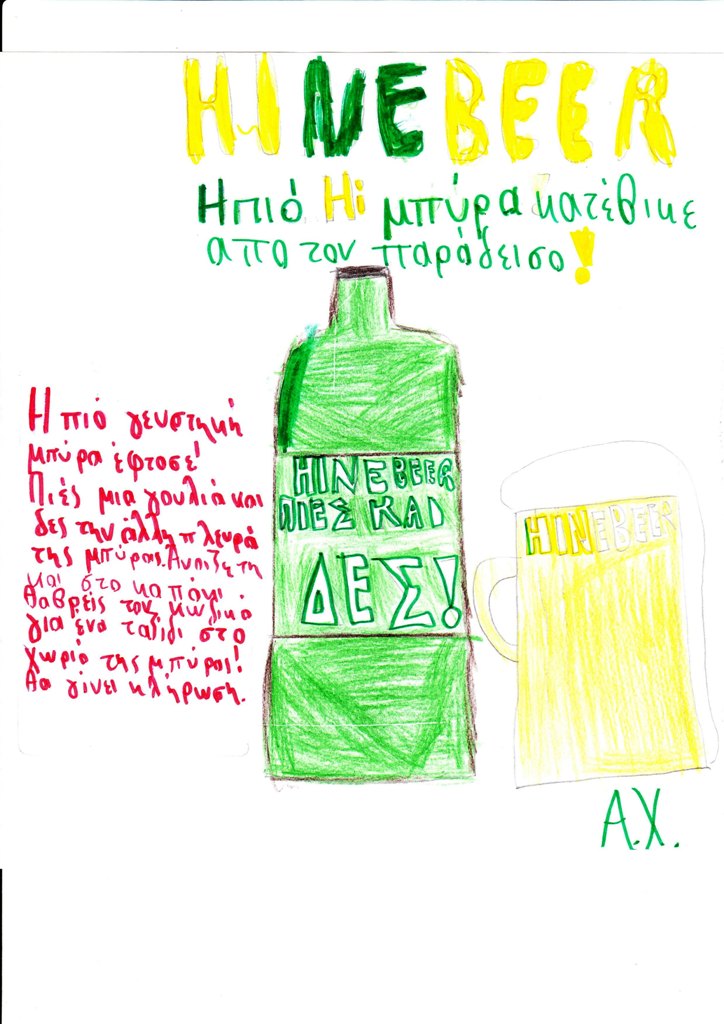 HINEBEER
Η πιό Hi μπύρα κατέβικε
απο τον παράδεισο!
Η πιό γευστηκή
μπύρα έφτασε!
Πιές μια γουλιά και
δες την άλλη πλευρά
της μπύρας. Άνοιξε τη
και στο καπάκι
θα βρεις τον κωδικό
για ενα ταξίδι στο
χωριό της μπύρας!
θα γίνει κλήρωση.
HINEBEER
ΠΙΕΣ ΚΑΙ
ΔΕΣ!
HINEBEER
Α.Χ.